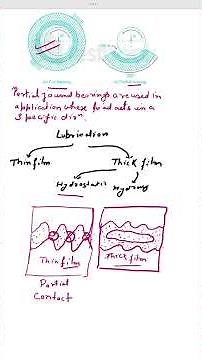 Partial journal bearings are used in
application where load acts in a
specific dirn.
Lubrication
Thin film
Thick film
Hydrostatic
Thin film
Thick film
Partial
Contact